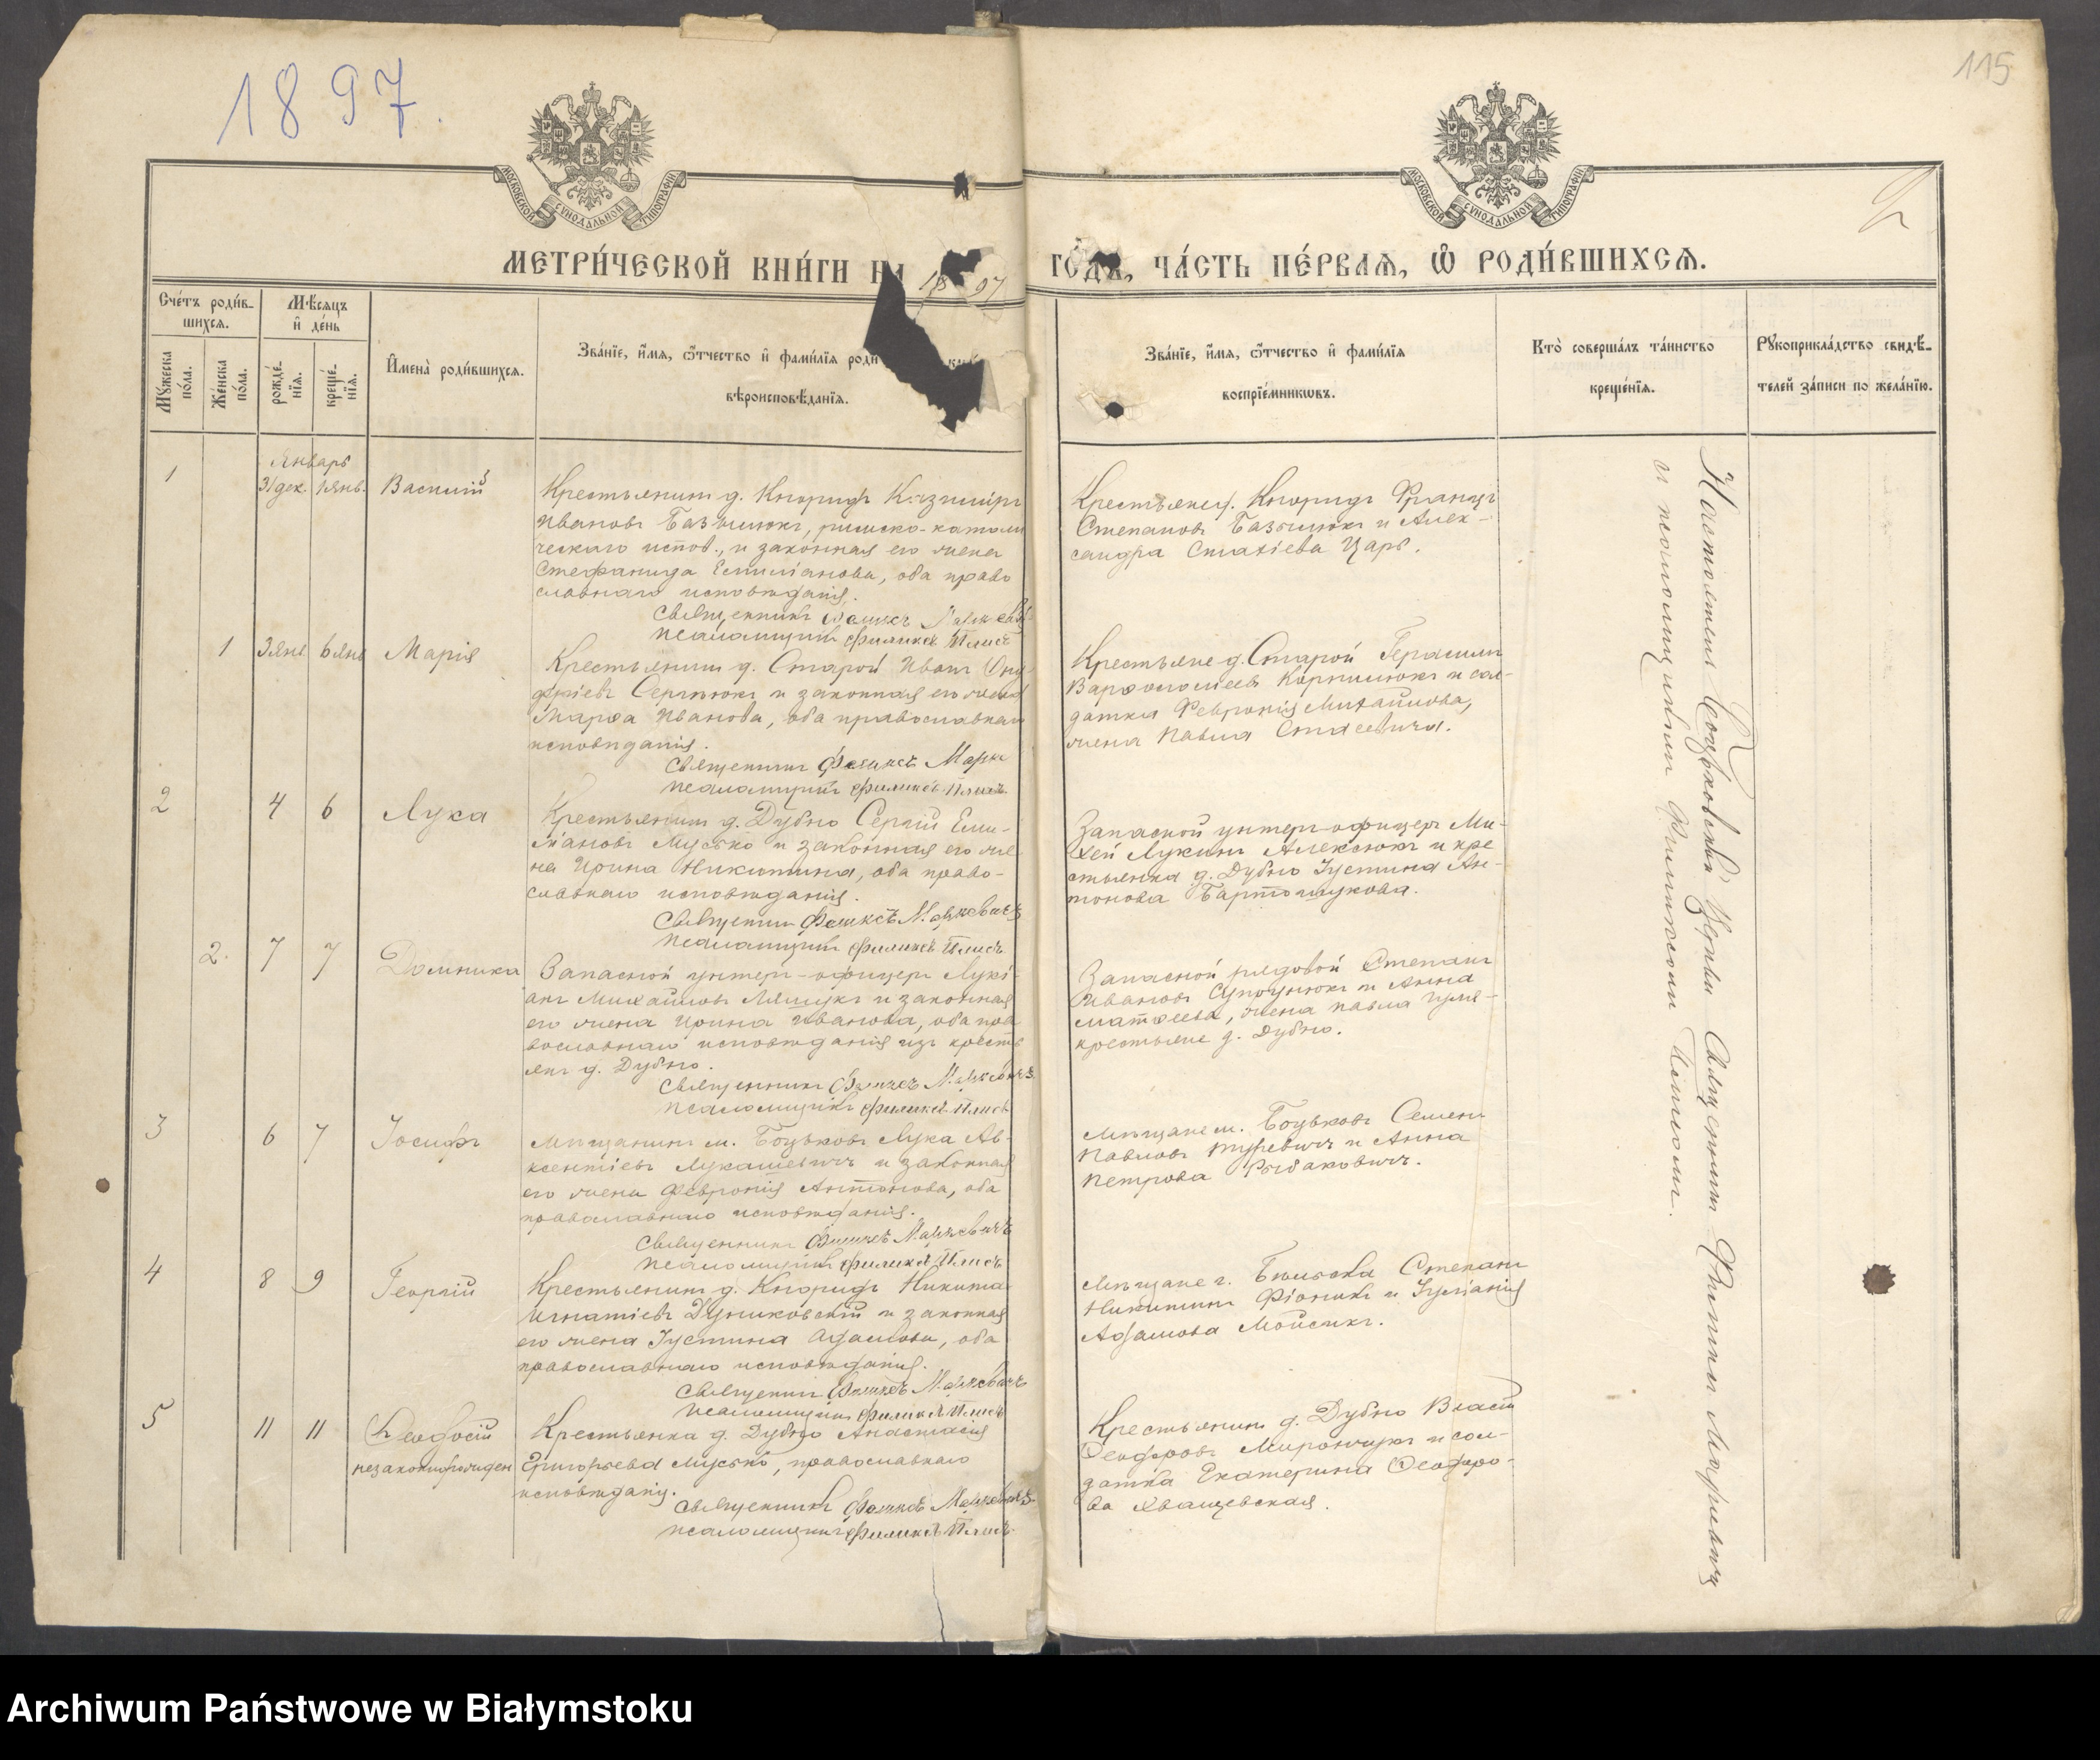 1897.
115
МОСКОВСКОЙ СѴНОДАЛЬНОЙ ТИПОГРАФІИ
МОСКОВСКОЙ СѴНОДАЛЬНОЙ ТИПОГРАФІИ
2
МЕТРИ́ЧЕСКОЙ КНИ́ГИ НА 1897 ГО́ДЪ, ЧА́СТЬ ПЕ́РВАѦ, Ѽ РОДИ́ВШИХСѦ.
Сче́тъ роди́в-
шихсѧ.
Мѣ́сѧцъ
и҆ де́нь
Мꙋ́жеска по́ла.
Же́нска по́ла.
рожде́-
нїѧ.
креще́-
нїѧ.
И҆мена̀ роди́вшихсѧ.
Зва́нїе, и҆́мѧ, ѻ҆́тчество и҆ фами́лїѧ роди
вѣроисповѣ́данїѧ.
Зва́нїе, и҆́мѧ, ѻ҆́тчество и҆ фами́лїѧ
воспрїе́мникѡвъ.
Кто̀ соверша́лъ та́инство
креще́нїѧ.
Рꙋкоприкла́дство свидѣ́-
телей за́писи по жела́нїю.
Январь
1 31 дек. 1 янв. Василій
Крестьянинъ д. Кнориды Казимиръ
Ивановъ Базылюкъ, римско-католи
ческаго испов., и законная его жена
Стефанида Емиліанова, оба право
славнаго исповѣданія.
Священникъ Феликсъ Мацкевичъ
псаломщикъ Филиксъ Плисъ
Крестьяне д. Кнориды Францъ
Степановъ Базылюкъ и Алек-
сандра Стахіева Царь.
1 3 янв 6 янв Марія
Крестьянинъ д. Старой Иванъ Ону
фріевъ Сергіюкъ и законная его жена
Марѳа Иванова, оба православнаго
исповѣданія.
Священникъ Феликсъ Мацк
псаломщикъ Филиксъ Плисъ
Крестьяне д. Старой Герасимъ
Варѳоломеевъ Корнилюкъ и сол-
датка Февронія Михайлова,
жена Павла Стасевича.
2 4 6 Лука
Крестьянинъ д. Дубно Сергій Еми-
ліановъ Мусько и законная его же
на Ирина Никитина, оба право-
славнаго исповѣданія.
Священникъ Феликсъ Мацкевичъ
псаломщикъ Филиксъ Плисъ
Запасной унтеръ-офицеръ Ми-
хей Лукинъ Алексюкъ и кре
стьянка д. Дубно Іустина Ан-
тонова Бартошукова.
2. 7 7 Домника
Запасной унтеръ-офицеръ Лукі
анъ Михайловъ Лящукъ и законная
его жена Ирина Иванова, оба пра
вославнаго исповѣданія изъ кресть
янъ д. Дубно.
Священникъ Феликсъ Мацкевичъ
псаломщикъ Филиксъ Плисъ
Запасной рядовой Степанъ
Ивановъ и Анна
Матѳеева, жена Павла
крестьяне д. Дубно.
3 6 7 Іосифъ
Мѣщанинъ м. Боцьковъ Лука Ав-
ксентіевъ Лукашевичъ и законная
его жена Февронія Антонова, оба
православнаго исповѣданія.
Священникъ Феликсъ Мацкевичъ
псаломщикъ Филиксъ Плисъ
Мѣщане м. Боцьковъ Семенъ
Павловъ Туревичъ и Анна
Петрова Рыбаковичъ.
4 8 9 Георгій
Крестьянинъ д. Кнориды Никита
Игнатіевъ Дуниковскій и законная
его жена Іустина Адамова, оба
православнаго исповѣданія.
Священникъ Феликсъ Мацкевичъ
псаломщикъ Филиксъ Плисъ
Мѣщане г. Бѣльска Степанъ
Никитинъ Фіоникъ и Іуліанія
Адамова Мойсикъ.
5 11 11 Ѳеодосій
незаконнорожден
Крестьянка д. Дубно Анастасія
Григорьева Мусько, православнаго
исповѣданія.
Священникъ Феликсъ Мацкевичъ
псаломщикъ Филиксъ Плисъ
Крестьянинъ д. Дубно Власій
Ѳеодоровъ Мирончукъ и сол-
датка Екатерина Ѳеодоро-
ва Хващевская.
Настоятель Боцьковской Церкви Священникъ Феликсъ Мацкевичъ
и псаломщикомъ Филиксомъ Плисомъ.
Archiwum Państwowe w Białymstoku